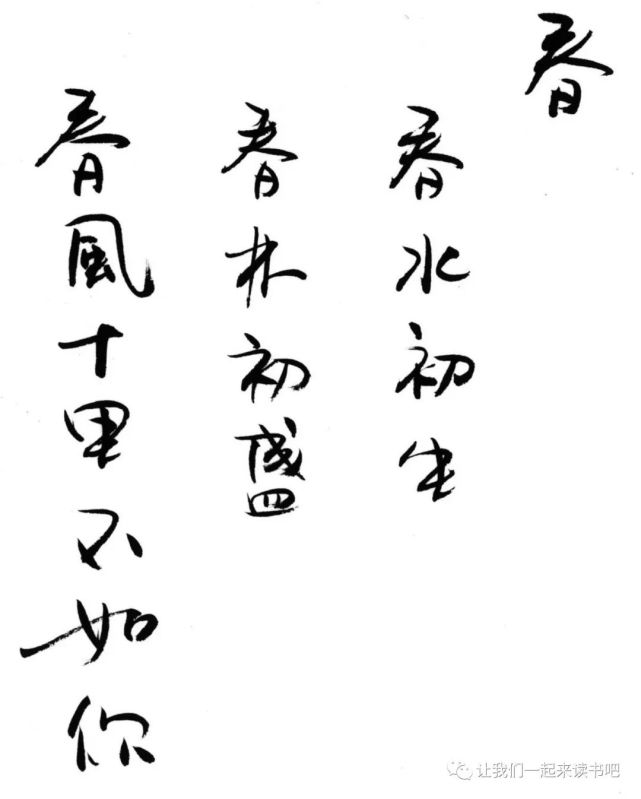 春
春水初生
春林初盛
春風十里不如你
让我们一起来读书吧